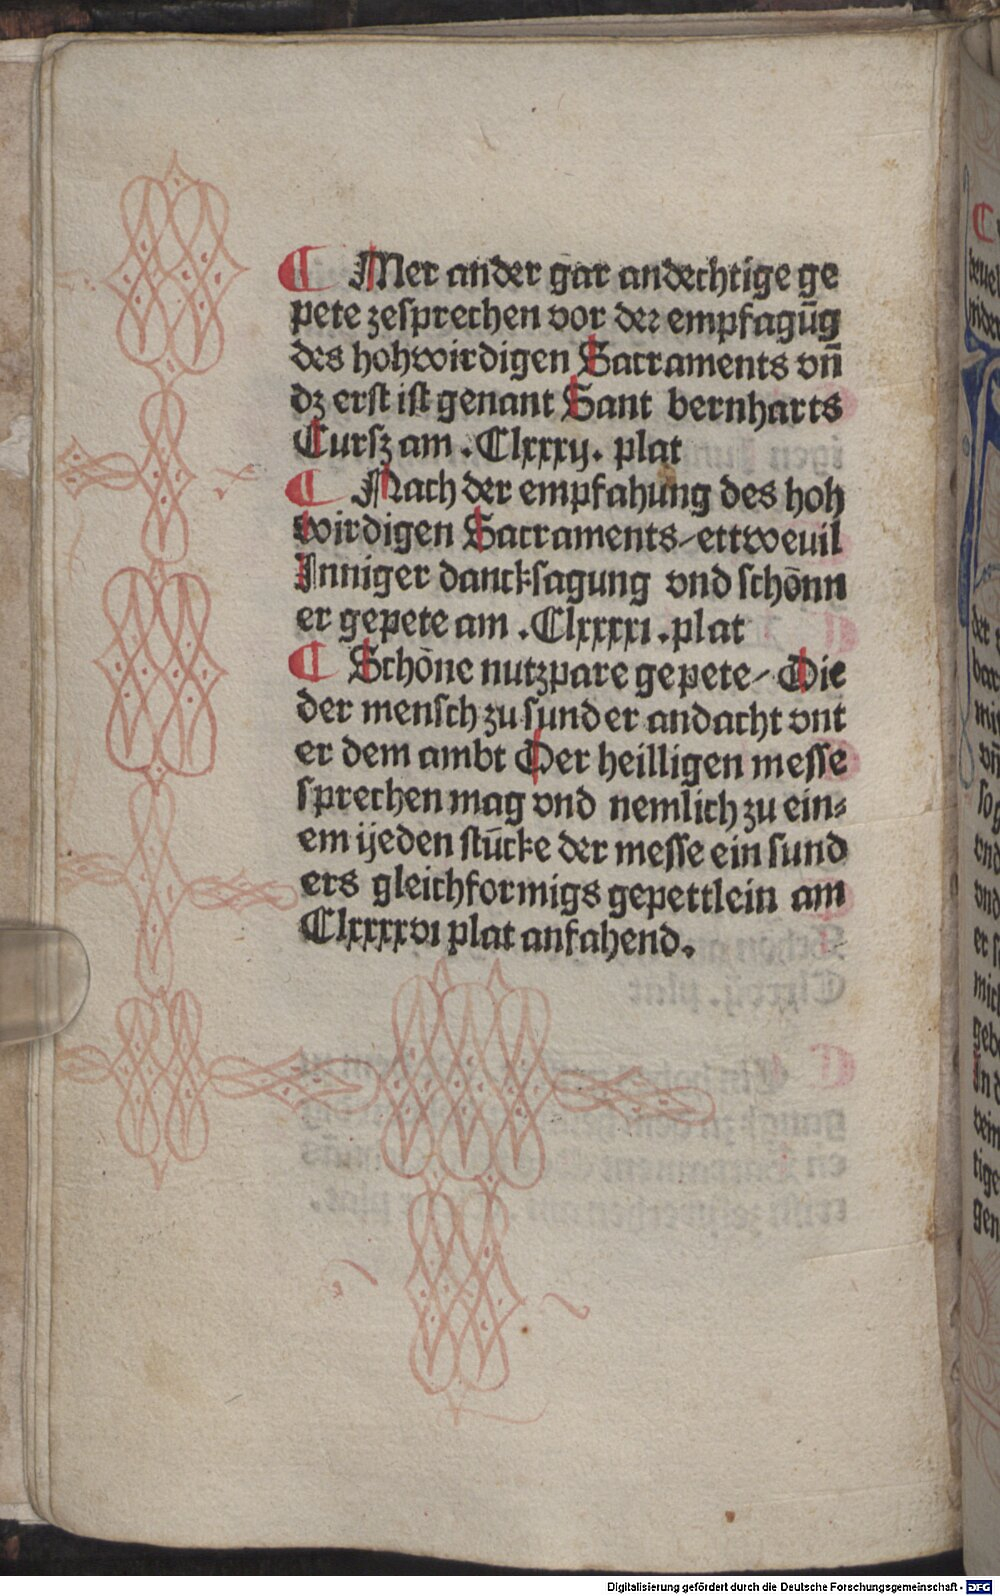 ¶ Mer ander gar andechtige ge
pete zesprechen vor der empfagūg
des hohwirdigen Sacraments vn̄
dz erst ist genant Sant bernharts
Cursz am .Clxxxij. plat
¶ Nach der empfahung des hoh
wirdigen Sacraments/ ettweuil
Inniger dancksagung vnd schönn
er gepete am .Clxxxxi .plat
¶ Schöne nutzpare gepete/ Die
der mensch zu sunder andacht vnt
er dem ambt Der heilligen messe
sprechen mag vnd nemlich zu ein⸗
em ijeden stūcke der messe ein sund
ers gleichformigs gepettlein am
Clxxxxvi plat anfahend.
Digitalisierung gefördert durch die Deutsche Forschungsgemeinschaft - DFG